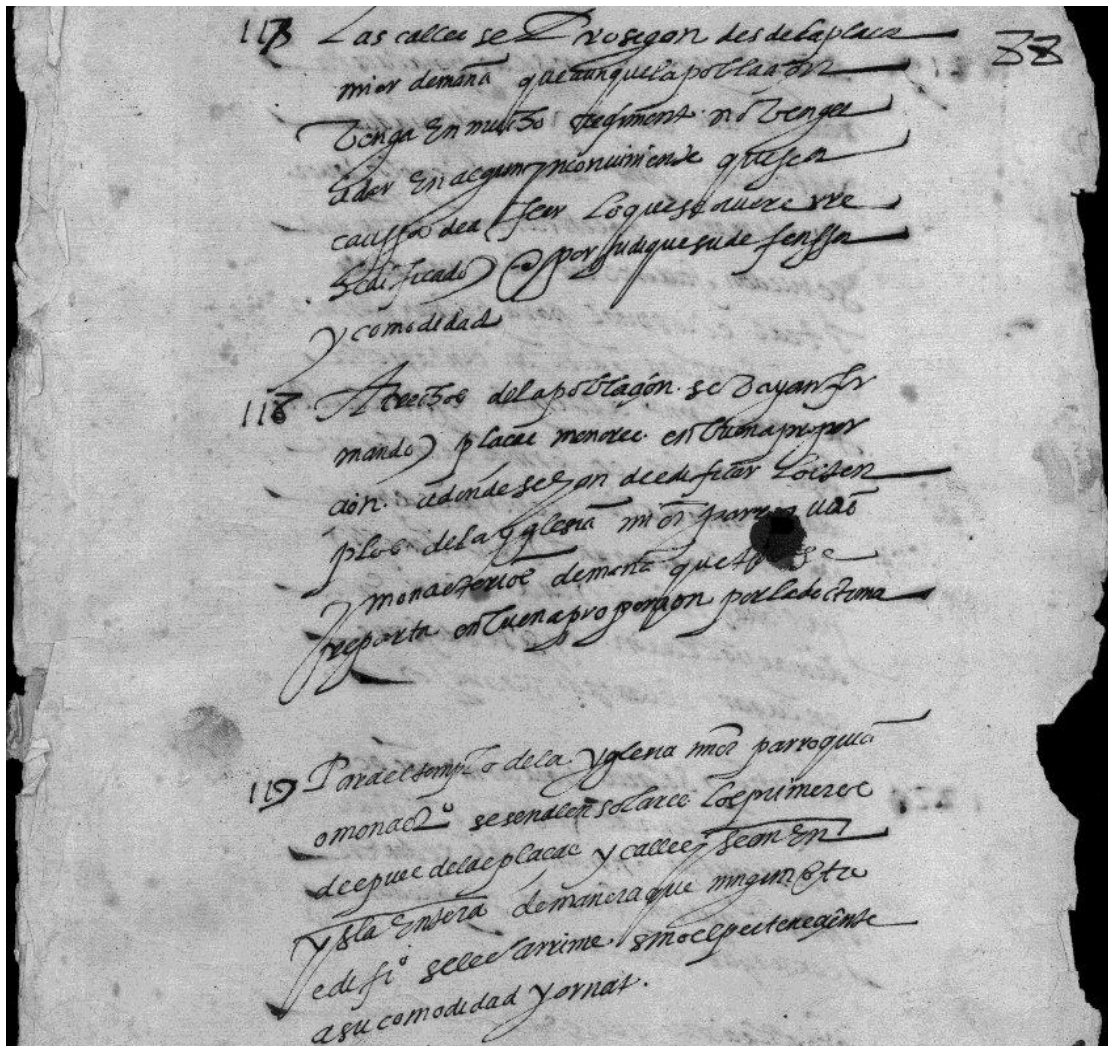 117 Las calles se Prosigan desdelaplaca
88
maior demanā queaunquelapoblaçion
venga En mucho no venga
adar En algun ynconuiniente quesea
caussa dea fear loquesehuuiere rre
hedificado o perjudiquesudefenssa
y comodidad
118 A trechos delapoblaçion se vayan for
mando plaças menores en buenapropor
çion adondesehan deedificar lostem
plos dela yglesia maior parroquias
y monasterios demanā que se
reparta enbuenaproporçion porladoctrina
119 Parael templo dela yglesia maior parroquia
o monastº sesenalen solares losprimeros
despues delasplaças y calles Sean En
ysla Entera demaneraque ningun otro
edifiº selesarrime sinoelpertenesçiente
a su comodidad yornato.